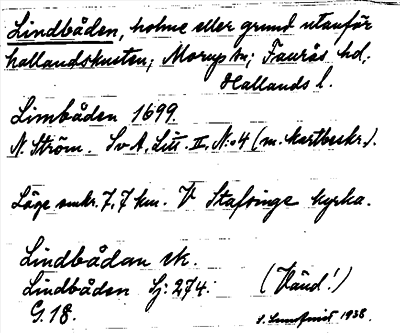 Lindbåden, holme eller grund utanför
hallandskusten; Morups sn; Faurås hd.
Hallands l.
Limbåden 1699.
N. Ström. SvA, Litt. II. N:o4 (m. kartbeskr.).
Läge omkr. 7,7 km. V Stafsinge kyrka.
Lindbådan ek.
Lindbåden Sj: 274.
(Vänd!)
G. 18.
1938.